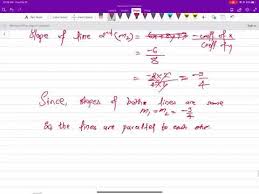 Slope of line 2nd (m2) = - coeff of x / coeff of y
= -6 / 8
= - 2×3 / 2×4 = -3 / 4
Since, slopes of both lines are same
m1 = m2 = -3/4
So the lines are parallel to each other